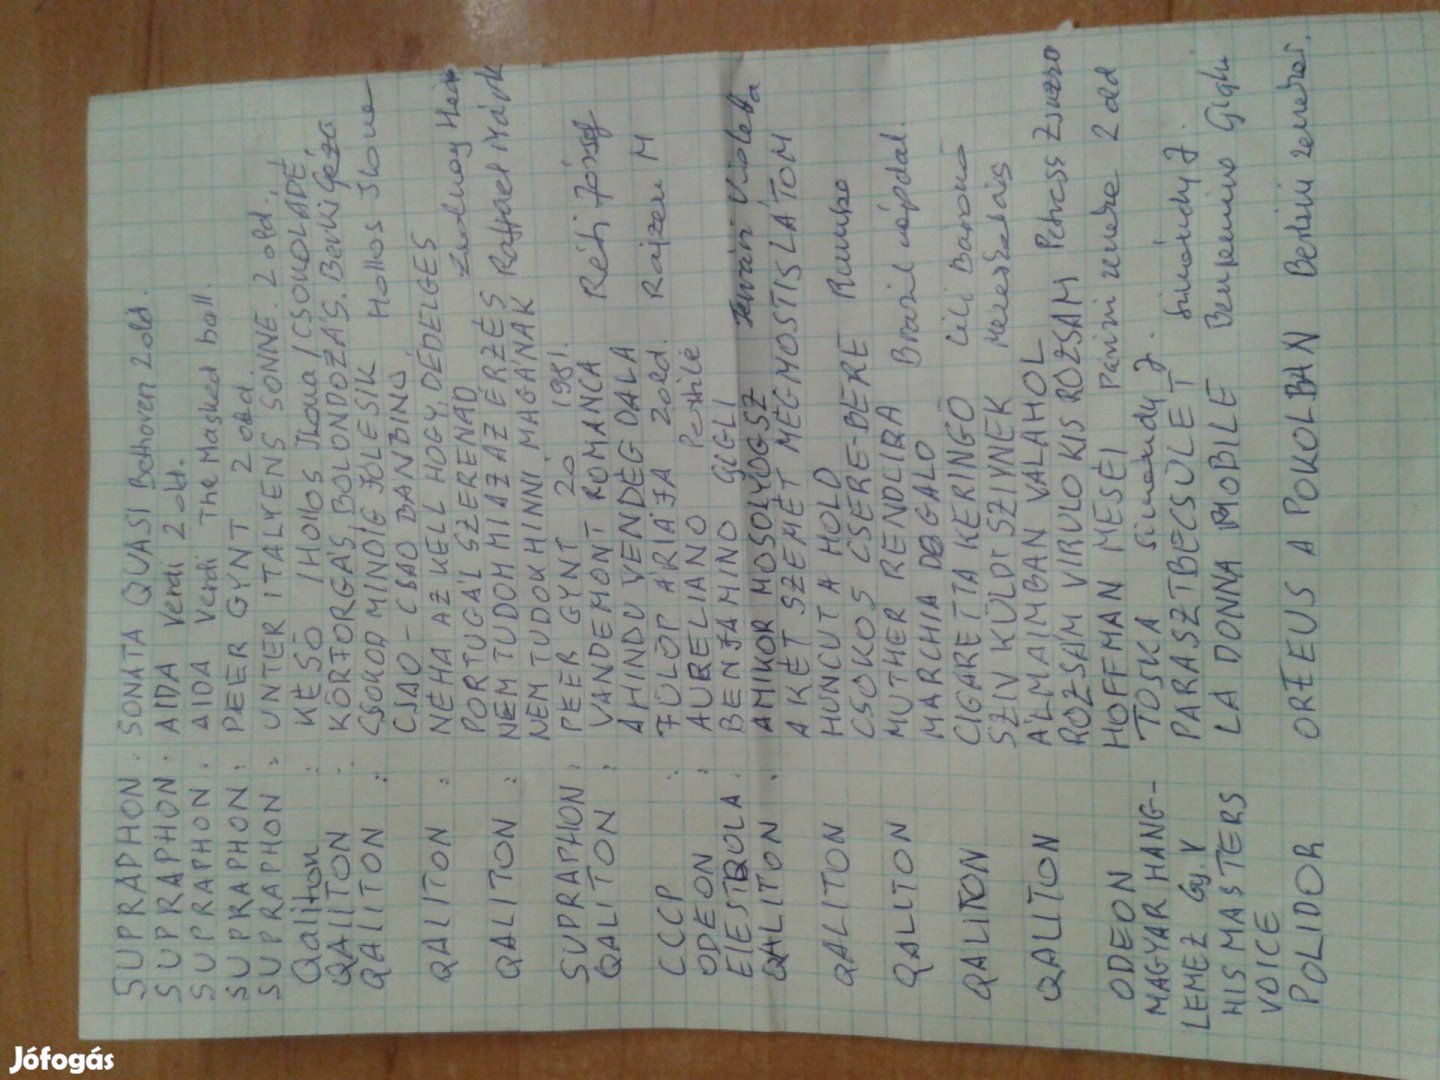 SUPRAPHON. SONATA QUASI Bethoven 2 old.
SUPRAPHON. AIDA Verdi 2 old.
SUPRAPHON. AIDA Verdi The Masked ball.
SUPRAPHON. PEER GYNT 2 old.
SUPRAPHON. UNTER ITALYENS SONNE. 2 old.
Qaliton : KÉSŐ /Hollos Ilona/ CSOKOLÁDÉ,
QALITON : KÖRFORGÁS, BOLONDOZÁS. Berki Géza
QALITON : CSOKOD MINDÍG JÓLESIK Hollos Ilona
CSAO-CSAO BANBINO.
QALITON : NÉHA AZ KELL HOGY DÉDELGES
PORTUGÁL SZERENÁD
QALITON : NEM TUDOM MI AZ AZ ÉRZÉS
NEM TUDOK HINNI MAGÁNAK
SUPRAPHON : PEER GYNT 20 1951.
QALITON : VANDEMONT ROMÁNCA Réti József
A HINDU VENDÉG DALA
CCCP : FÜLÖP ÁRIÁJA 2 old. Rajzen M
ODEON : AURELIANO
BENJAMINO GIGLI
QALITON . AMIKOR MOSOLYOGSZ Violetta
A KÉT SZEMÉT MÉG MOSTIS LÁTOM
QALITON HUNCUT A HOLD
CSÓKOS CSERE-BERE Rumba
QALITON MUTHER RENDLIRA Brazil népdal.
MARCHIA
QALITON CIGARETTA KERINGŐ
SZIV KÜLDI SZIVNEK
QALITON ÁLMAIMBAN VALAHOL
RÓZSÁM VIRULO KIS RÓZSÁM Petress Zsuzsa
ODEON HOFFMAN MESÉI Párizsi zenekar 2 old
MAGYAR HANG- TOSKA Simándy J.
LEMEZ Gy. V PARASZTBECSÜLET Simándy J.
HIS MASTERS LA DONNA MOBILE Benjamino Gigli
VOICE
POLIDOR ORFEUS A POKOLBAN Berlini zenekar.
Jófogás